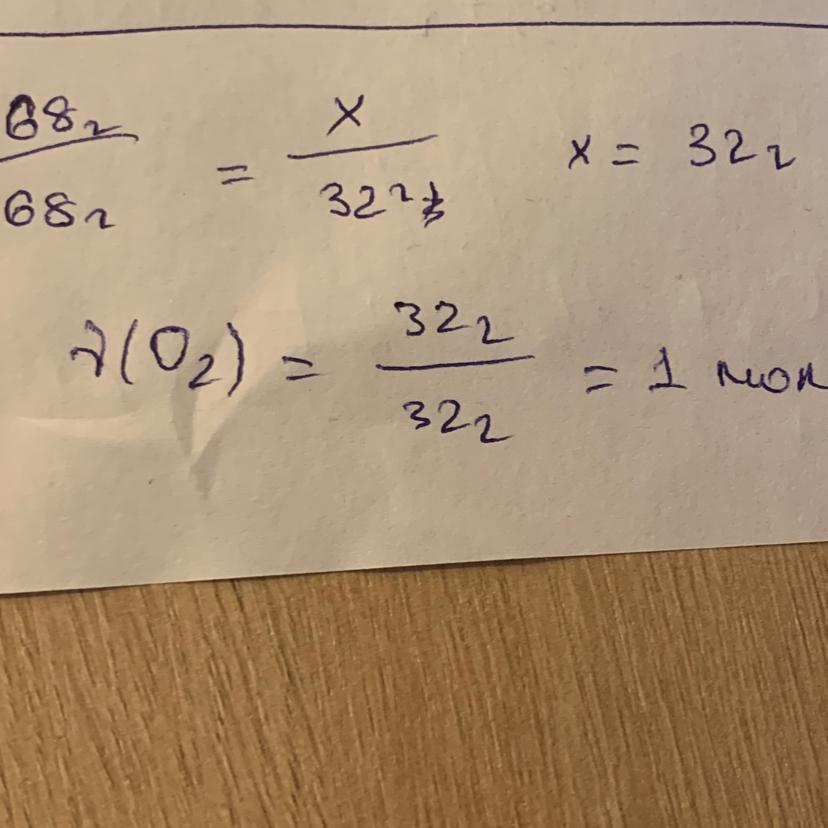 68г/68г = x/32г x = 32г
ν(O₂) = 32г/32г = 1 мол